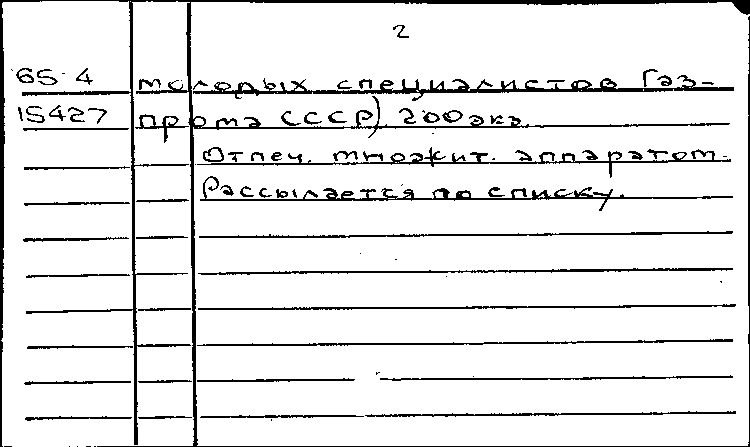 2
65-4 молодых специалистов Газ-
15427 прома СССР) 200экз.
Отпеч. множит. аппаратом.
Рассылается по списку.